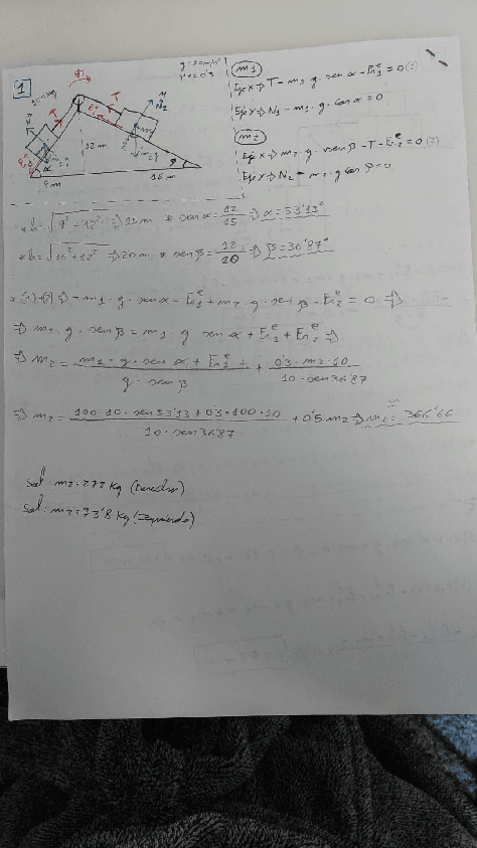 1
g=10m/s²
μ=0'3
100kg
T
T
N
N2
m2·g
α
β
12m
9m
16m
m1
Eje x⇒ T - m1·g·senα - Fr1ᵉ = 0 (1)
Eje y⇒ N1 - m1·g·cosα = 0
m2
Eje x⇒ m2·g·senβ - T - Fr2ᵉ = 0 (2)
N2 - m2·g cosβ=0
* h = √9²+12² ⇒ 15m * senα = 12/15 ⇒ α = 53'13°
* h = √16²+12² ⇒ 20m * senβ = 12/20 ⇒ β = 36'87°
* (1)+(2) ⇒ - m1·g·senα - Fr1ᵉ + m2·g·senβ - Fr2ᵉ = 0 ⇒
⇒ m2·g·senβ = m1·g senα + Fr1ᵉ + Fr2ᵉ ⇒
⇒ m2 = (m1·g·senα + Fr1ᵉ +)/(g·senβ) + (0'3·m2·10)/(10·sen36'87)
⇒ m2 = (100·10·sen53'13+0'3·100·10)/(10·sen36'87) + 0'5 m2 ⇒ m2 = 366'66
Sol: m2=277 Kg (Derecha)
Sol: m2=73'8 Kg (Izquierda)